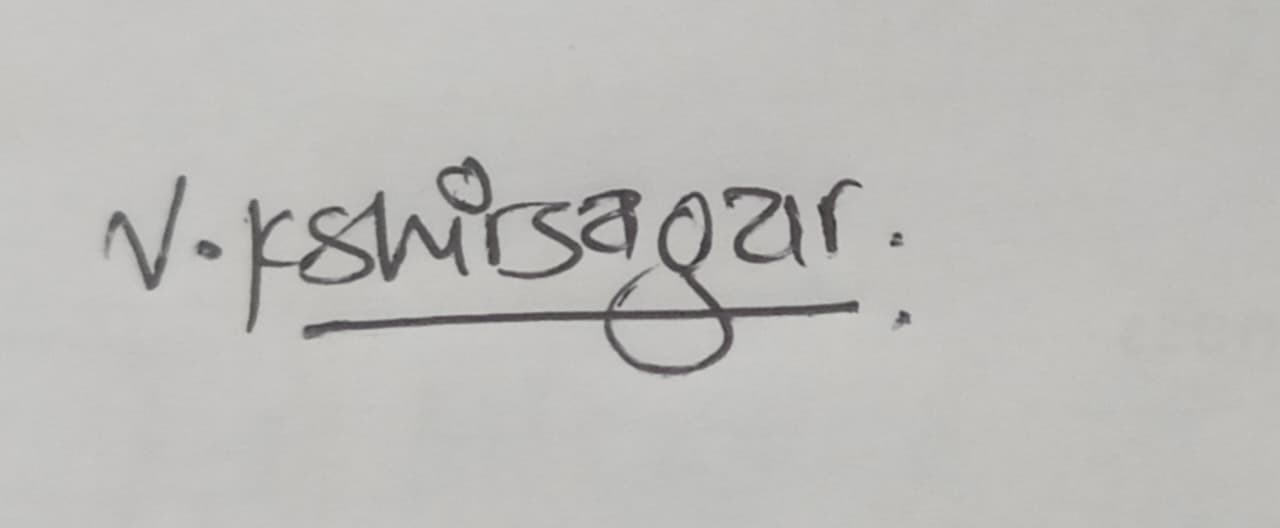 N. Kshirsagar.